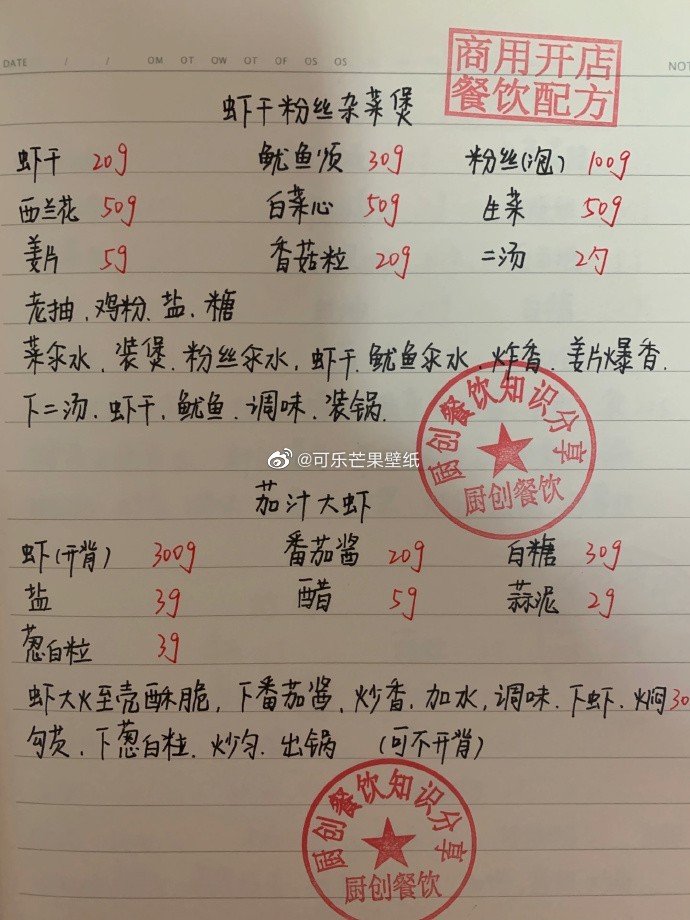 DATE / / OM OT OW OT OF OS OS
NOT
商用开店
餐饮配方
虾干粉丝杂菜煲
虾干 20g 鱿鱼须 30g 粉丝(泡) 100g
西兰花 50g 白菜心 50g 生菜 50g
姜片 5g 香菇粒 20g 二汤 2勺
老抽、鸡粉、盐、糖
菜汆水、装煲、粉丝汆水,虾干、鱿鱼汆水、炸香、姜片爆香、
下二汤、虾干、鱿鱼、调味、装锅.
厨创餐饮知识分享
厨创餐饮
@可乐芒果壁纸
茄汁大虾
虾(开背) 300g 番茄酱 20g 白糖 30g
盐 3g 醋 5g 蒜泥 2g
葱白粒 3g
虾大火至壳酥脆,下番茄酱,炒香、加水,调味、下虾、焖30
勾芡、下葱白粒、炒匀、出锅 (可不开背)
厨创餐饮知识分享
厨创餐饮